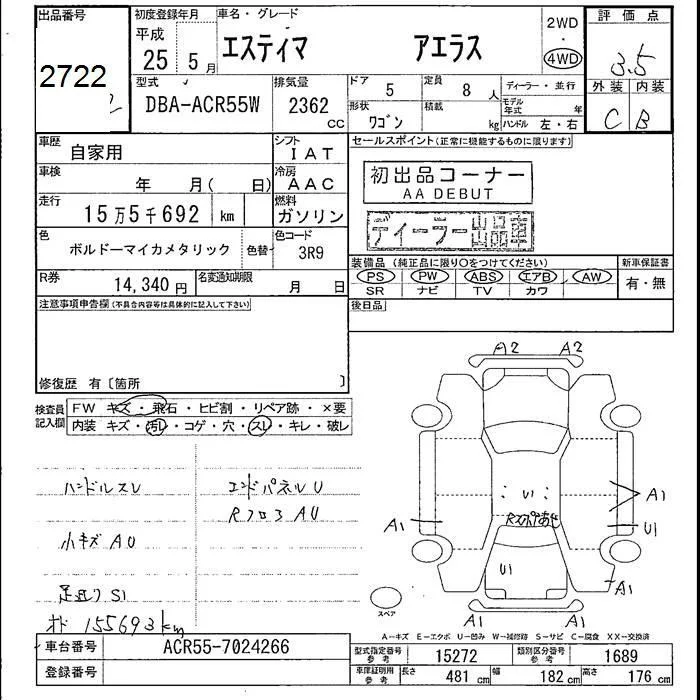 出品番号 初度登録年月 車名・グレード 2WD 評価点
2722 平成 25年 5月 エスティマ アエラス ・ 4WD 3.5
型式 排気量 ドア 定員 ディーラー・並行 外装 内装
DBA-ACR55W 2362 cc 5 8人 モデル年式 年 C B
形状 ワゴン 積載 kg ハンドル 左・右
車歴 自家用 シフト IAT セールスポイント(正常に機能するものに限ります)
車検 年 月( 日) 冷房 AAC 初出品コーナー
AA DEBUT
走行 15万5千692 km 燃料 ガソリン ディーラー出品車
色 ボルドーマイカメタリック 色替 色コード 3R9
装備品 (純正品に限り○をつけてください) 新車保証書
R券 14,340円 名変通知期限 月 日 PS PW ABS エアB AW 有・無
SR ナビ TV カワ
注意事項申告欄(不具合内容等は具体的に記入して下さい) 後日品
修復歴 有〔箇所 〕
検査員記入欄 FW キズ・飛石・ヒビ割・リペア跡・×要
内装 キズ・汚レ・コゲ・穴・スレ・キレ・破レ
A2 A2
ハンドルスレ エンドパネルU
RフロアAU
小キズAU
足廻りS1
オド 155693km
U1 A1
A1 U1
U1 A1
スペア A1 A1
A-キズ E-エクボ U-凹み W-補修跡 S-サビ C-腐食 XX-交換済
車台番号 ACR55-7024266 型式指定番号 参考 15272 類別区分番号 参考 1689
登録番号 車庫証明用 参考 長さ 481cm 幅 182cm 高さ 176cm